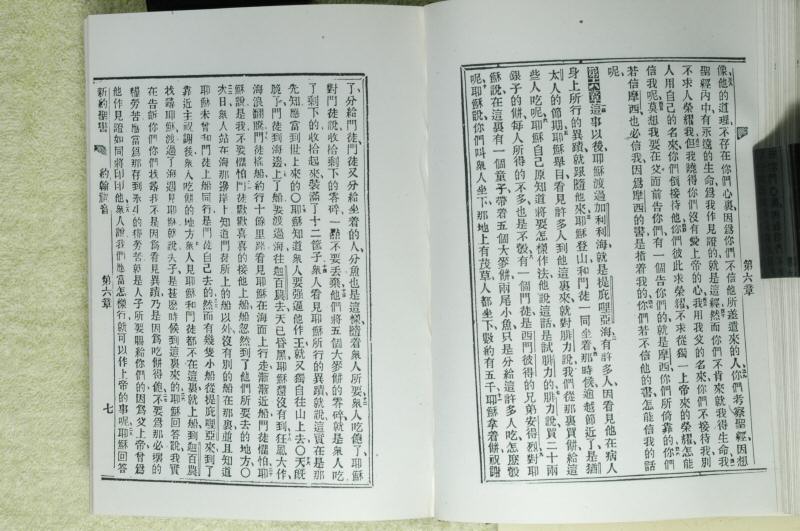 第六章
像他的道理不存在你們心裏因爲你們不信他所差遣來的人你們考察聖經因想
聖經內中有永遠的生命爲我作見證的就是這經然而你們不肯來就我得生命我
不求人榮耀我但我曉得你們沒有愛上帝的心我用我父的名來你們不接待我別
人用自己的名來你們倒接待他你們彼此求榮耀不求從獨一上帝來的榮耀怎能
信我呢莫想我要在父面前告你們有一個告你們的就是摩西你們所倚靠的你們
若信摩西也必信我因爲摩西的書是指着我的你們若不信他的書怎能信我的話
呢
第六章這事以後耶穌渡過加利利海就是提庇哩亞海有許多人因看見他在病人
身上所行的異蹟就跟隨他來耶穌登山和門徒一同坐着那時候逾越節近了是猶
太人的節期耶穌舉目看見許多人到他這裏來就對腓力說我們從那裏買餅給這
些人吃呢耶穌自己原知道將要怎樣作法他說這話是試腓力的腓力說買二十兩
銀子的餅每人所得的不多也是不彀有一個門徒是西門彼得的兄弟安得烈對耶
穌說在這裏有一個童子帶着五個大麥餅兩尾小魚只是分給這許多人吃怎麼彀
呢耶穌說你們叫衆人坐下那地上有茂草人都坐下數約有五千耶穌拿着餅祝謝
了分給門徒門徒又分給坐着的人分魚也是這樣隨着衆人所要衆人吃飽了耶穌
對門徒說收拾剩下的零碎一點不要丟棄他們將五個大麥餅的零碎就是衆人吃
了剩下的收拾起來裝滿了十二筐子衆人看見耶穌所行的異蹟就說這實在是那
先知應當到世上來的〇耶穌知道衆人要強逼他作王就又獨自往山上去〇天旣
晚了門徒到海邊上了船要渡過海往迦百農去天已昏黑耶穌還沒有到狂風大作
海浪翻騰門徒搖船約行十餘里路看見耶穌在海面上行走漸漸近船門徒懼怕耶
穌說是我不要懼怕門徒歡歡喜喜的接他上船船忽然到了他們所要去的地方〇
次日衆人站在海那邊岸上知道門徒所上的船以外沒有別的船在那裏並且知道
耶穌未曾和門徒上船同行是門徒自己去的然而有幾隻小船從提庇哩亞來到了
靠近主祝謝後衆人吃餅的地方衆人見耶穌和門徒都不在這裏就上船到迦百農
找尋耶穌渡過了海遇見耶穌就說夫子是甚麼時候到這裏來的耶穌回答說我實
在告訴你們你們找尋我不是因爲看見異蹟乃是因爲吃餅得飽不要爲那必壞的
糧勞苦應當爲那存到永生的糧勞苦就是人子所要賜給你們的因爲父上帝曾爲
他作見證如同將印印他衆人說我們應當怎樣行就可以作上帝的事呢耶穌回答
新約聖書
約翰福音
第六章
七